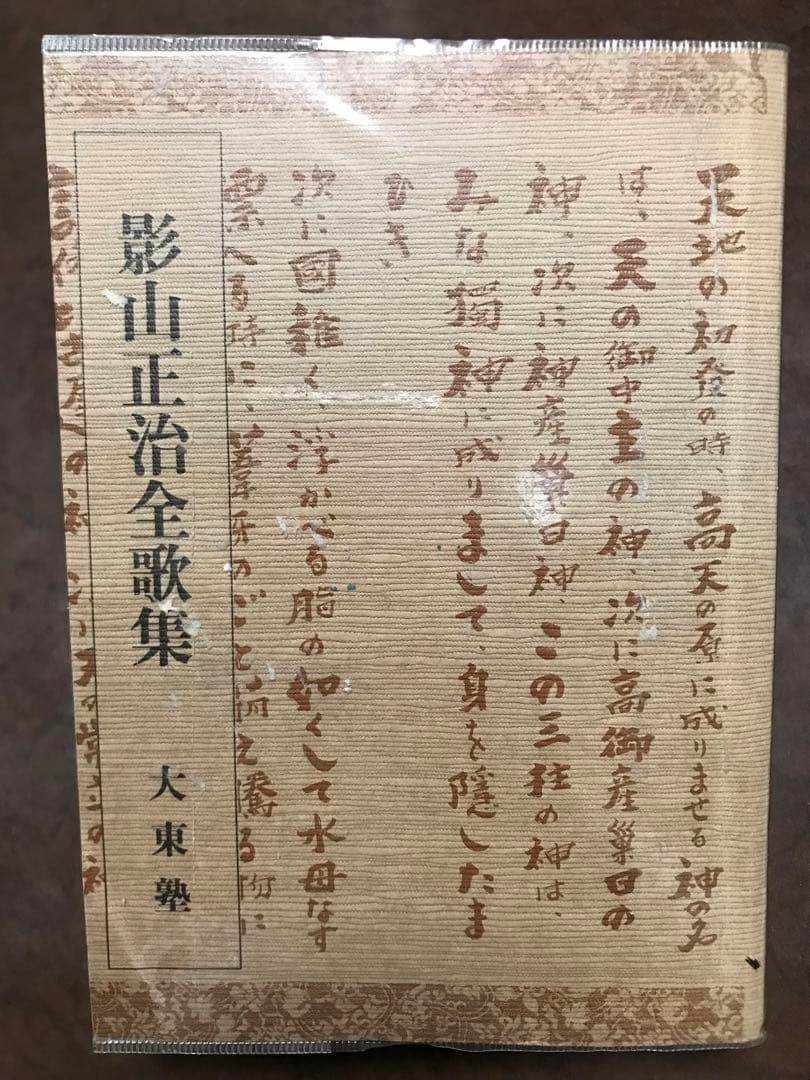 天地の初發の時、高天の原に成りませる神の名
は、天の御中主の神、次に高御産巣日の
神、次に神産巣日神、この三柱の神は、
みな獨神に成りまして、身を隱したま
ひき、
次に國稚く、浮かべる脂の如くして水母なす
漂へる時に、葦牙のごと萌え騰る物に
影山正治全歌集
大東塾